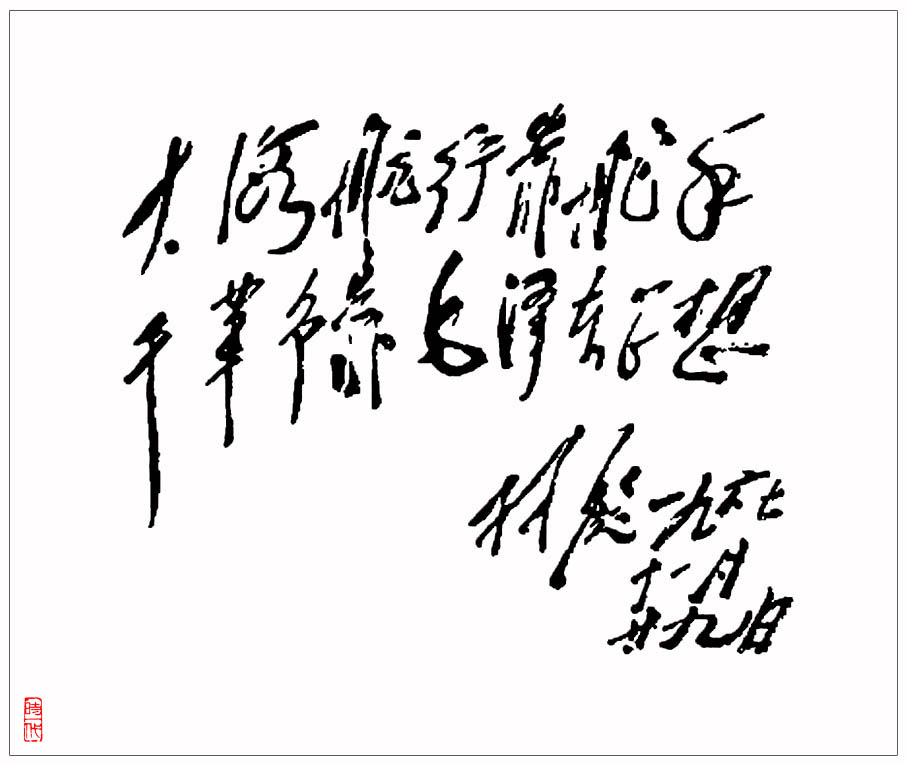 大海航行靠舵手
干革命靠毛泽东思想
林彪 一九六七
十一月
廿九日
時代